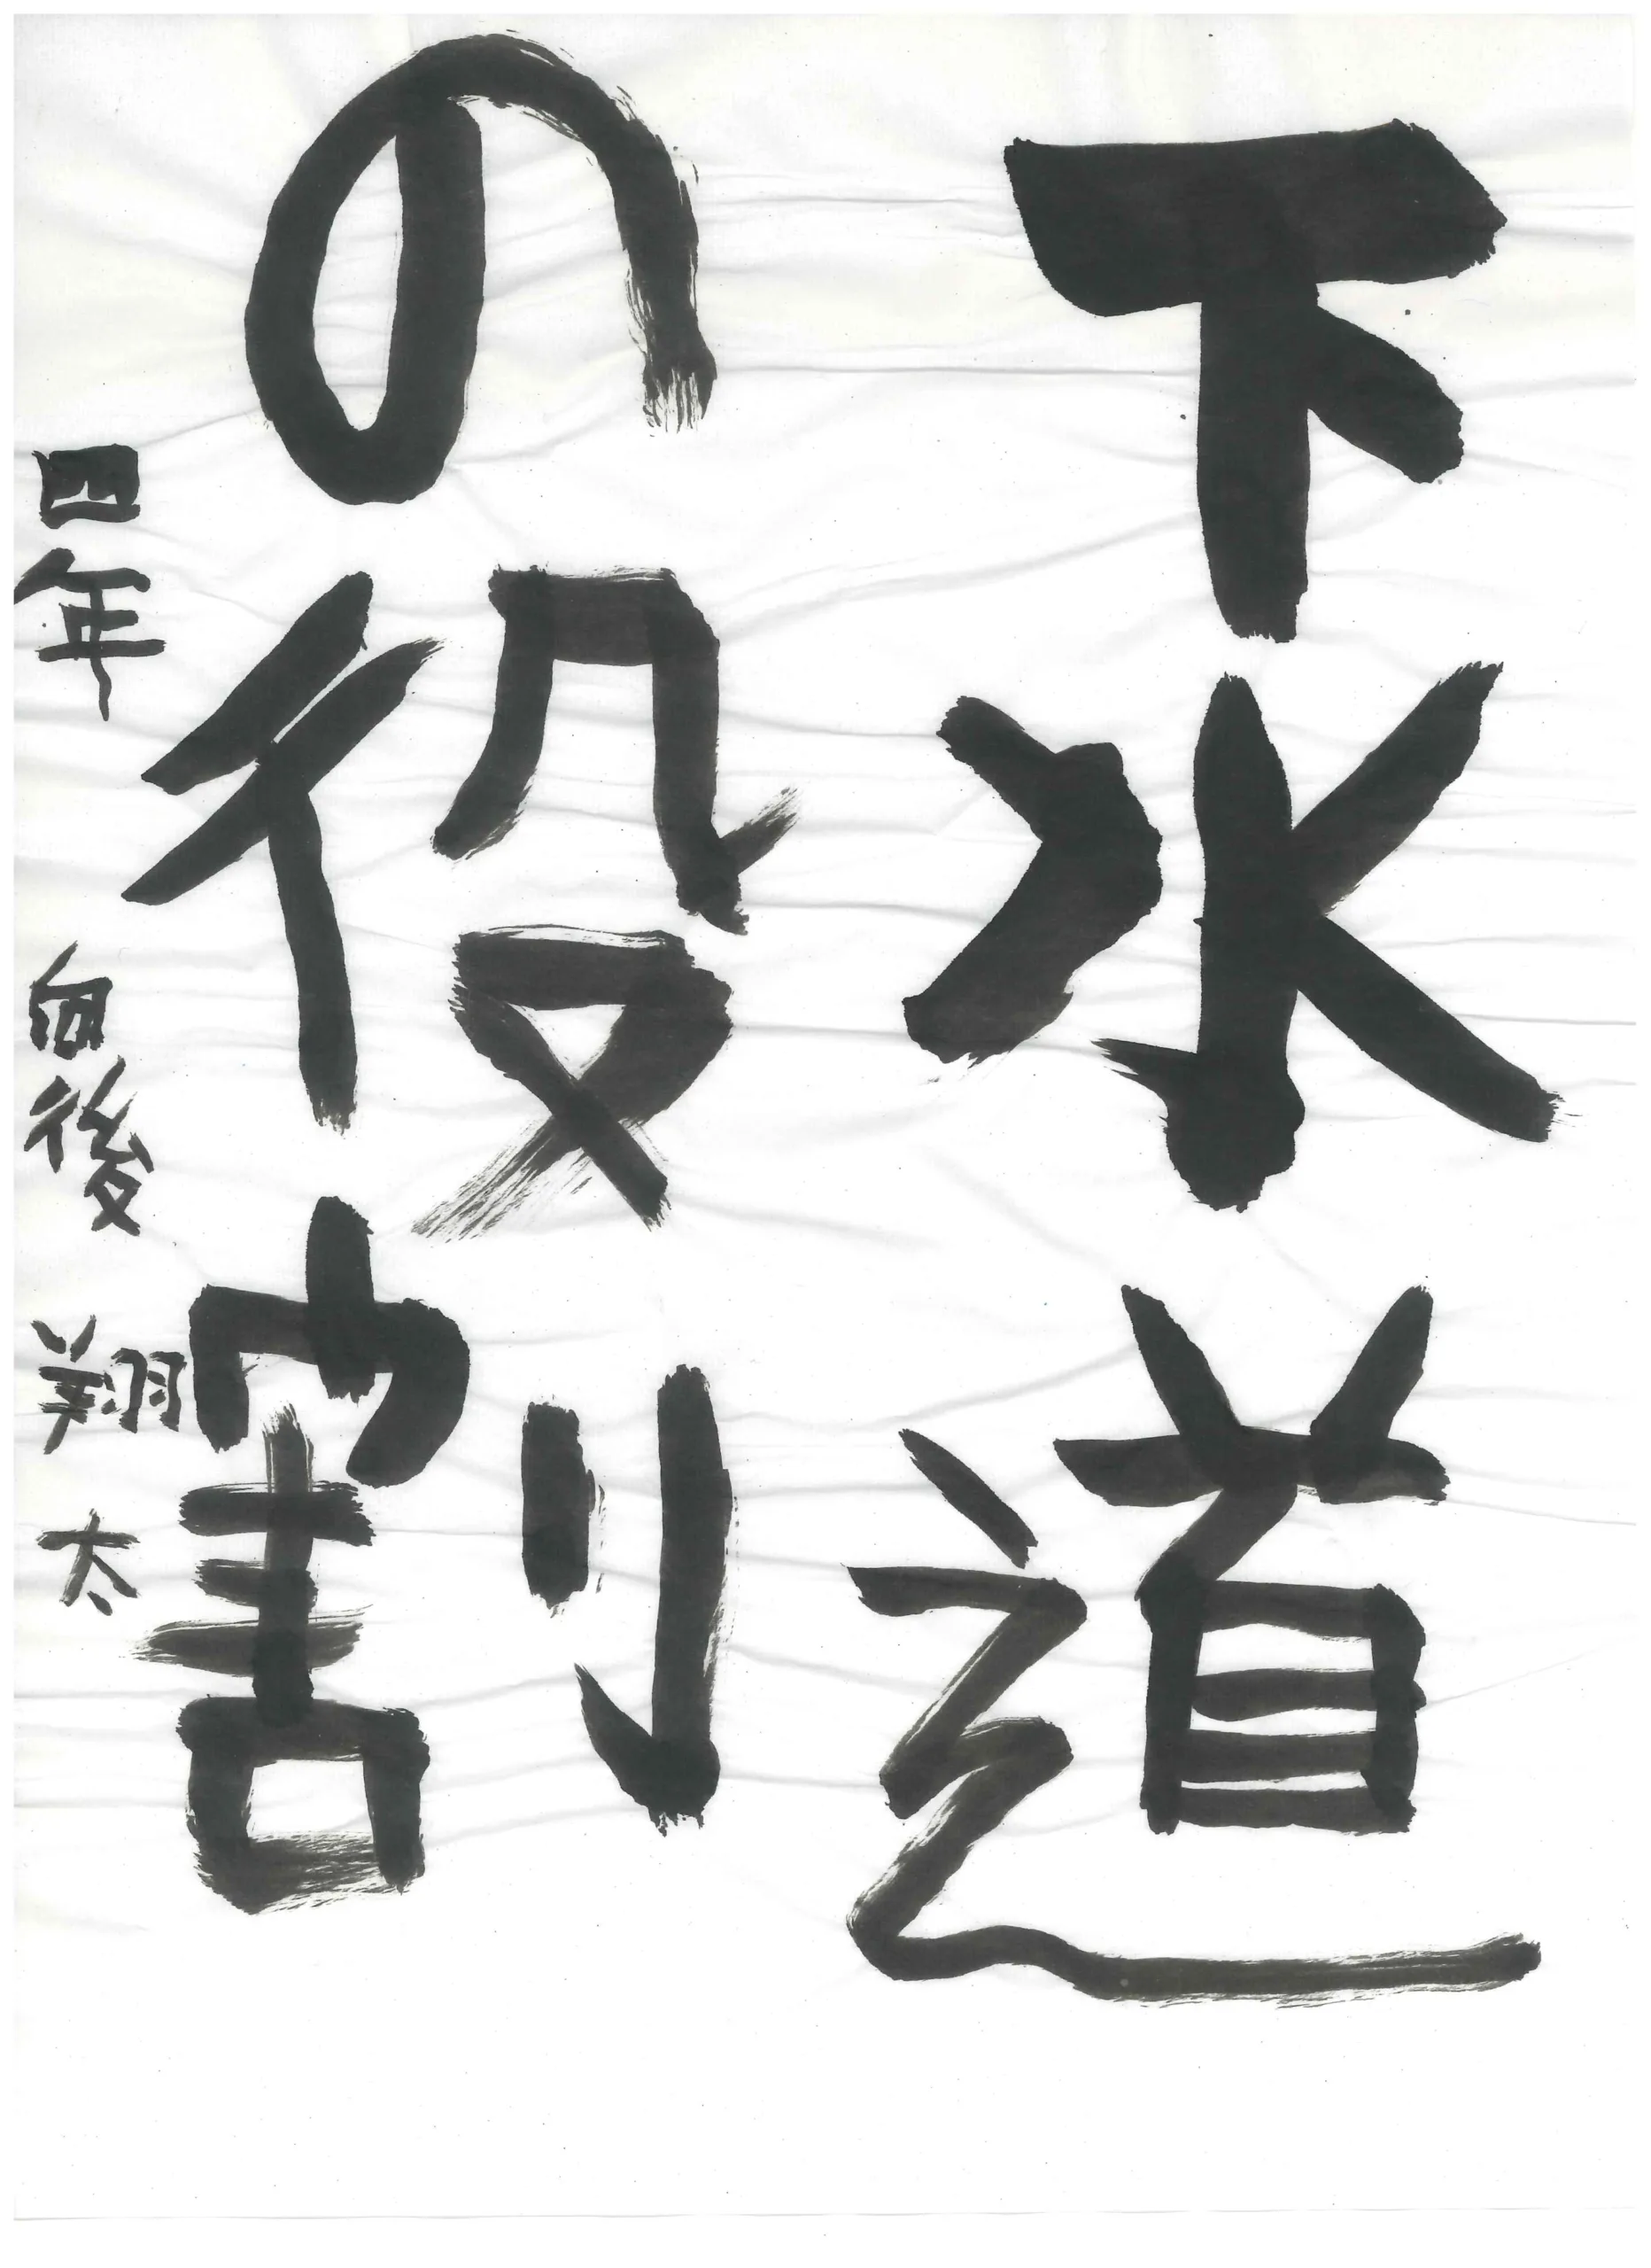 下水道
の役割
四年 向後 翔太